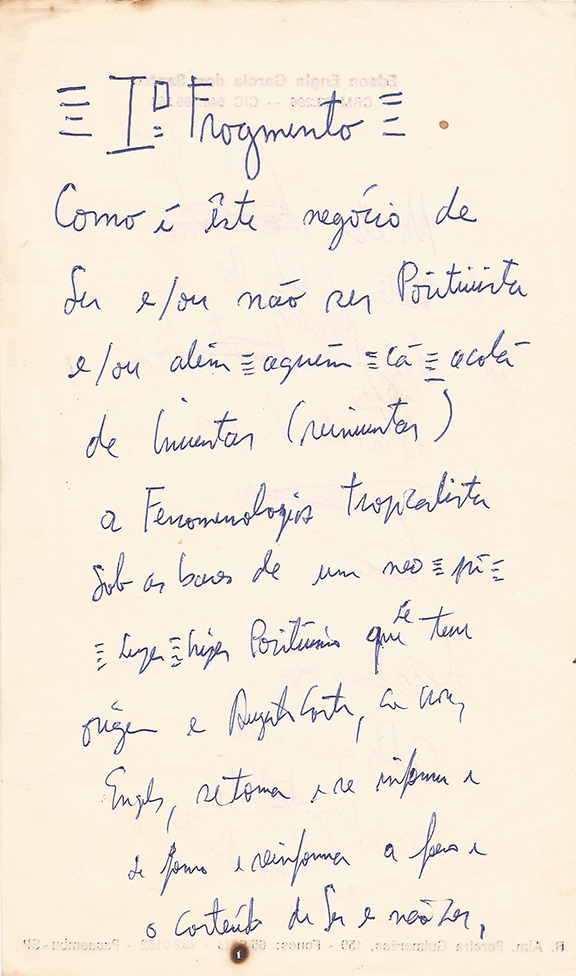 ≡ Iº Fragmento ≡
Como é êste negócio de
Ser e/ou não ser Positivista
e/ou além ≡ aquém ≡ cá ≡ acolá
de Inventar (reinventar)
a Fenomenologia tropicalista
Sob as bases de um neo ≡ pi ≡
Positivismo que se tem
origem e Augusto Comte,
Engels, retoma e se informa e
de forma e reinforma a forma e
o conteúdo de Ser e não Ser,
Edson Engls Garcia dos Santos
R. Alm. Pereira Guimarães, 130 - Fones: - Pacaembu - SP